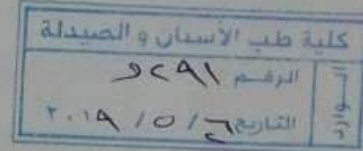 كلية طب الأسنان و الصيدلة
الوارد
الرقم
التاريخ ٦ / ٥ / ٢٠١٩